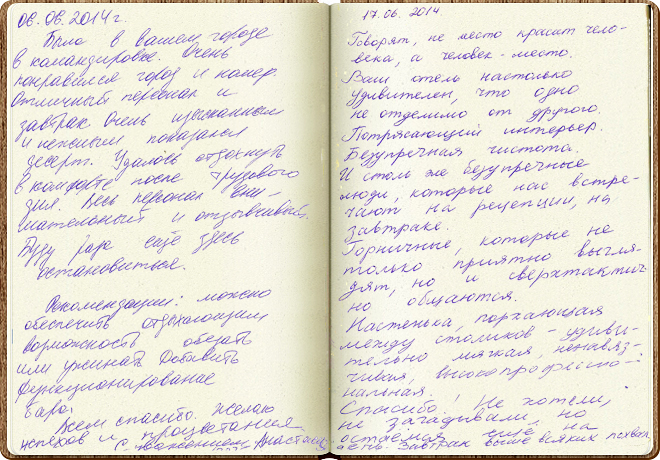 06.06.2014г.
Была в вашем городе
в командировке. Очень
понравился город и номер.
Отличный персонал и
завтрак. Очень изысканным
и нежным показался
десерт. Удалось отдохнуть
в комфорте после трудового
дня. Весь персонал вни-
мательный и отзывчивый.
Буду рада ещё здесь
остановиться.
Рекомендации: можно
обеспечить отдыхающим
возможность обедать
или ужинать. Добавить
функционирование
бара.
Всем спасибо. Желаю
успехов и процветания
С уважением, Анастасия
17.06.2014
Говорят, не место красит чело-
века, а человек - место.
Ваш отель настолько
удивителен, что одно
не отделимо от другого.
Потрясающий интерьер.
Безупречная чистота.
И столь же безупречные
люди, которые нас встре-
чают на рецепции, на
завтраке.
Горничные, которые не
только приятно выгля-
дят, но и сверхтактич
но общаются.
Настенька, порхающая
между столиков - удиви-
тельно мягкая, ненавяз-
чивая, высокопрофессио-
нальная.
Спасибо! Не хотели,
не загадывали, но
остаёмся ещё на
день. Завтрак выше всяких похвал